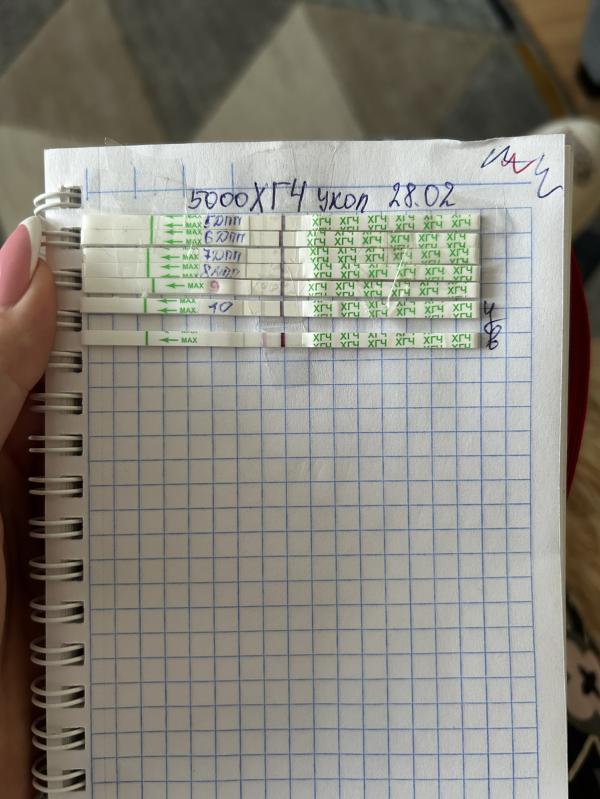 5000 ХГЧ укол 28.02
MAX 5ДПП ХГЧ ХГЧ ХГЧ ХГЧ ХГЧ ХГЧ
MAX 6ДПП ХГЧ ХГЧ ХГЧ ХГЧ ХГЧ ХГЧ
MAX 7ДПП ХГЧ ХГЧ ХГЧ ХГЧ ХГЧ ХГЧ
MAX 8ДПП ХГЧ ХГЧ ХГЧ ХГЧ ХГЧ ХГЧ
MAX 9 ХГЧ ХГЧ ХГЧ ХГЧ ХГЧ ХГЧ
MAX 10 ХГЧ ХГЧ ХГЧ ХГЧ ХГЧ ХГЧ у
MAX ХГЧ ХГЧ ХГЧ ХГЧ ХГЧ ХГЧ в